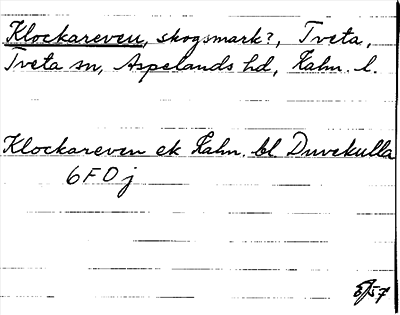 Klockareven, skogsmark?, Tveta,
Tveta sn, Aspelands hd, Kalm. l.
Klockareven ek Kalm. bl Duvekulla
6F0j